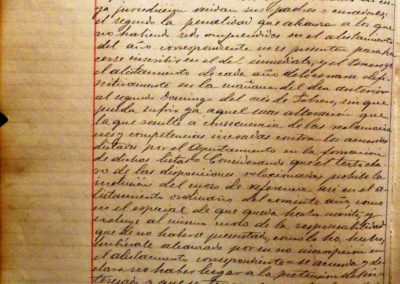 ya jurisdiccion residan sus padres o curadores;
el segundo la penalidad que alcanza a los que
no habiendo sido comprendidos en el alistamiento
del año correspondiente no se presenten para ha-
cerse inscribir en el del inmediato; y el tercero q.
el alistamiento de cada año deberá cerrarse defi-
nitivamente en la mañana del dia anterior
al segundo Domingo del mes de Febrero, sin que
pueda sufrir ya aquel mas alteracion que
la que resulte a consecuencia de las reclamacio-
nes y competencias incoadas contra los acuerdos
dictados por el Ayuntamiento en la formacion
de dichas listas. Considerando que el texto cla-
ro de las disposiciones relacionadas prohibe la
inclusion del mozo de referencia asi en el a-
listamiento ordinario del corriente año, como
en el especial de que queda hecho merito, y
excluye al mismo mozo de la responsabilidad
que de no haberse presentado, como lo ha hecho,
hubierale alcanzado por su no inscripcion en
el alistamiento correspondiente = se acuerda y de-
clara no haber lugar a la pretension del in-
teresado, y que se